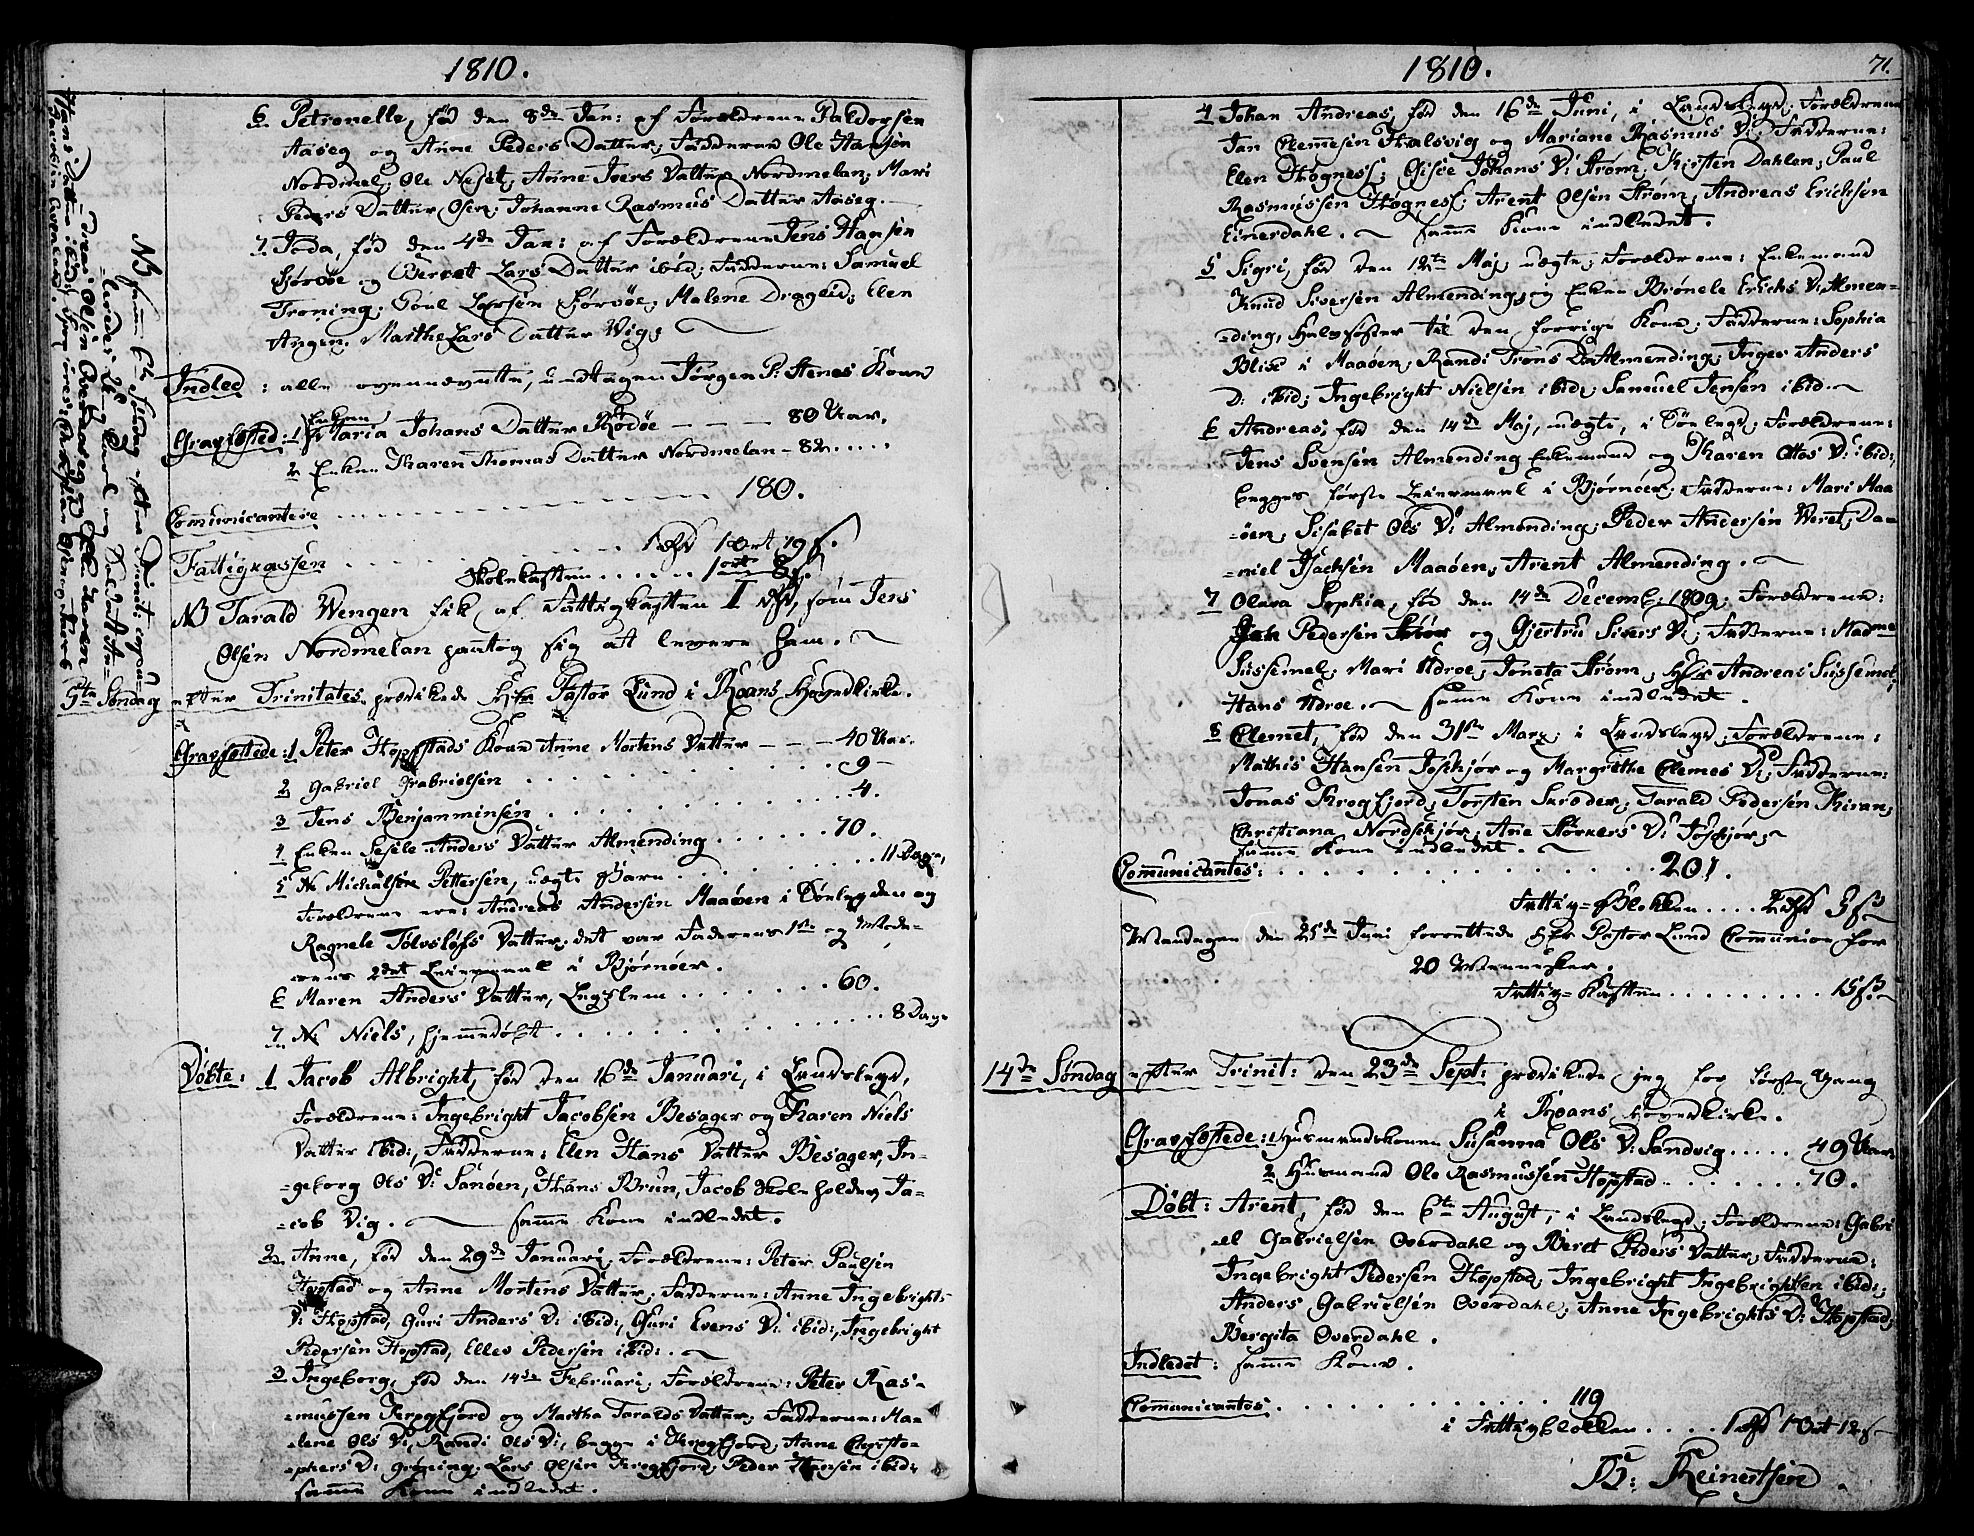 1810.
6 Petronelle, fød den 8de Jan: af Forældrene Paldorsen
Aaseg og Anne Peders Datter; Fadderne Ole Hansøn
Nordmel; Ole Neset; Anne Ivers Datter Nordmelan; Mari
Peders Datter Osen; Johanne Rasmus Datter Aaseg.
7. Toda, fød den 4de Jan: af Forældrene Jens Hansen
Sørvöe og Berret Lars Datter ibid; Fadderne: Samuel
Troning; Poul Larsen Sørvöe; Malene Drageid; Elen
Angen. Marthe Lars Datter Wigs
Indled: alle ovennævnte, undtagen Jørgen P: Stenes Kone
Gravfæsted: 1 Enken Maria Johans Datter Rödöe - - - 80 Aar.
2 Enken Karen Thomas Datter Nordmelan - 82 ....
Communicantere 180.
Fattigkassen 1 Rd 1 Ort 19 s.
Skolekassen ...... 1 ort 8 s.
NB Tarald Wengen fik af Fattigkassen II Rd, som Jens
Olsen Nordmelan paatog sig at levere ham.
5te Søndag efter Trinitates prædikede Hr Pastor Lund i Roans Hovedkirke.
Gravfæstede: 1 Peter Hopstads Kone Anne Mortens Datter - - - 40 Aar.
2 Gabriel Gabrielsen ........ 9 -
3 Jens Benjanminsen ........ 4.
4 Enken Sesele Anders Datter Almending ...... 70.
5 N: Michalsen Pettersen, uægte Barn ........ 11 Dage,
Forældrene ere: Andreas Andersen Maaöen i Söelegden og
Ragnele Tölvsløfs Datter; det var Faderens 1ste og Mode-
rens 2det Leiermaal i Bjørnöer.
6 Maren Anders Datter, Legslem ....... 60.
7. N: Niels, hjemmedöbt ........ 8 Dage
Döbte: 1 Jacob Albright, fød den 16de Januari, i Landslegd,
Forældrene: Ingebright Jacobsen Besager og Karen Niels
Datter ibid:, Fadderne: Elen Hans Datter Besager, In-
geborg Ols D: Sanöen, Hans Brun, Jacob Skoleholder, Ja-
cob Vig. samme Kone indledet.
2. Anne, fød den 29de Januari, Forældrene: Peter Paulsen
Hopstad og Anne Mortens Datter; Fadderne: Anne Ingebrights
D: Hopstad, Guri Anders D: ibid:, Guri Evens D: ibid:, Ingebright
Pedersen Hopstad, Elles Pedersen ibid:.
3 Ingeborg, fød den 14de Februari; Forældrene: Peter Ras-
mussen Krogfjord og Martha Taralds Datter; Fadderne: Ma-
lene Ols D:, Randi Ols D:, begge i Krogfjord; Anne Christo-
phers D: Gröning; Lars Olsen Krogfjord; Peder Hansen ibid:
samme Kone indledet.
NB samme 5te Søndag efter Trinit: copu-
lerede: Ungkarl og
Peter Olsen Overaaseg og
Hans Datter ibid;
1810.
71.
4 Johan Andreas, fød den 16de Juni, i Landslegd; Forældrene
Jan Clemesen Halsvig og Mariane Rasmus D:, Fadderne:
Elen Hognes; Gisöe Johans D: Strøm; Kirsten Dahlen; Paul
Rasmussen Hognes; Arent Olsen Strøm; Andreas Ericksen
Einerdahl. samme Kone indledet.
5 Sigri, fød den 12te Maj, uægte; Forældrene: Enkemand
Knud Siversen Almending, og Enken Brönele Erichs D: Almen-
ding, Halvsøster til den forrige Kone; Fadderne: Sophia
Blisö i Maaöen; Randi Trons D: Almending; Inger Anders
D: ibid; Ingebright Nielsen ibid; Samuel Jensen ibid.
6 Andreas, fød den 14de Maj, uægte, i Söelegd; Forældrene:
Jens Svensen Almending Enkemand og Karen Ottos D: ibid:,
begges første Leiermaal i Bjørnöer; Fadderne: Mari Maa
öen; Sisebet Ols D: Almending; Peder Andersen Weret; Da-
niel Isachsen Maaöen; Arent Almending.
7 Olava Sophia, fød den 14de Decemb: 1809; Forældrene:
Pedersen og Gjertru Sivers D:, Fadderne: Madme
Sussemel; Mari Udroe; Joneta Strøm; Hr Andreas Süssemel;
Hans Udroe. samme Kone indledet.
8 Clemet, fød den 31te Marz, i Landslegd; Forældrene:
Mathis Hansen Joskjør og Margrethe Clemes D:; Fadderne:
Jonas Krogfjord; Torsten Skröder; Tarald Pedersen Kiran;
Christiana Nordskjør; Ane Størkers D: Joskjør;
samme Kone indledet.
Communicantes: ........ 201.
Fattig-Blokken .... 2 Rd 3 s
Mandagen den 25de Juni forrettede Hr Pastor Lund Communion for
20 Mennisker.
Fattig-Kassen ......... 15 s.
14de Søndag efter Trinit: den 23de Sept: prædikede jeg for første Gang
i Roans Hovedkirke.
Gravfæstede: 1 Husmandskonen Susanna Ols D: Sandvig ..... 49 Aar
2 Husmand Ole Rasmussen Hopstad ....... 70.
Döbt: Arent, fød den 6te August, i Landslegd; Forældrene: Gabri
el Gabrielsen Overdahl og Beret Peders Datter; Fadderne:
Ingebright Pedersen Hopstad; Ingebright Ingebrightsen ibid:;
Anders Gabrielsen Overdahl; Anne Ingebrights D: Hopstad;
Bergita Overdahl.
Indledet: samme Kone.
Communicantes ............ 119
i Fattigblokken .... 1 Rd 1 Ort 12 s
B: Reinertsen.